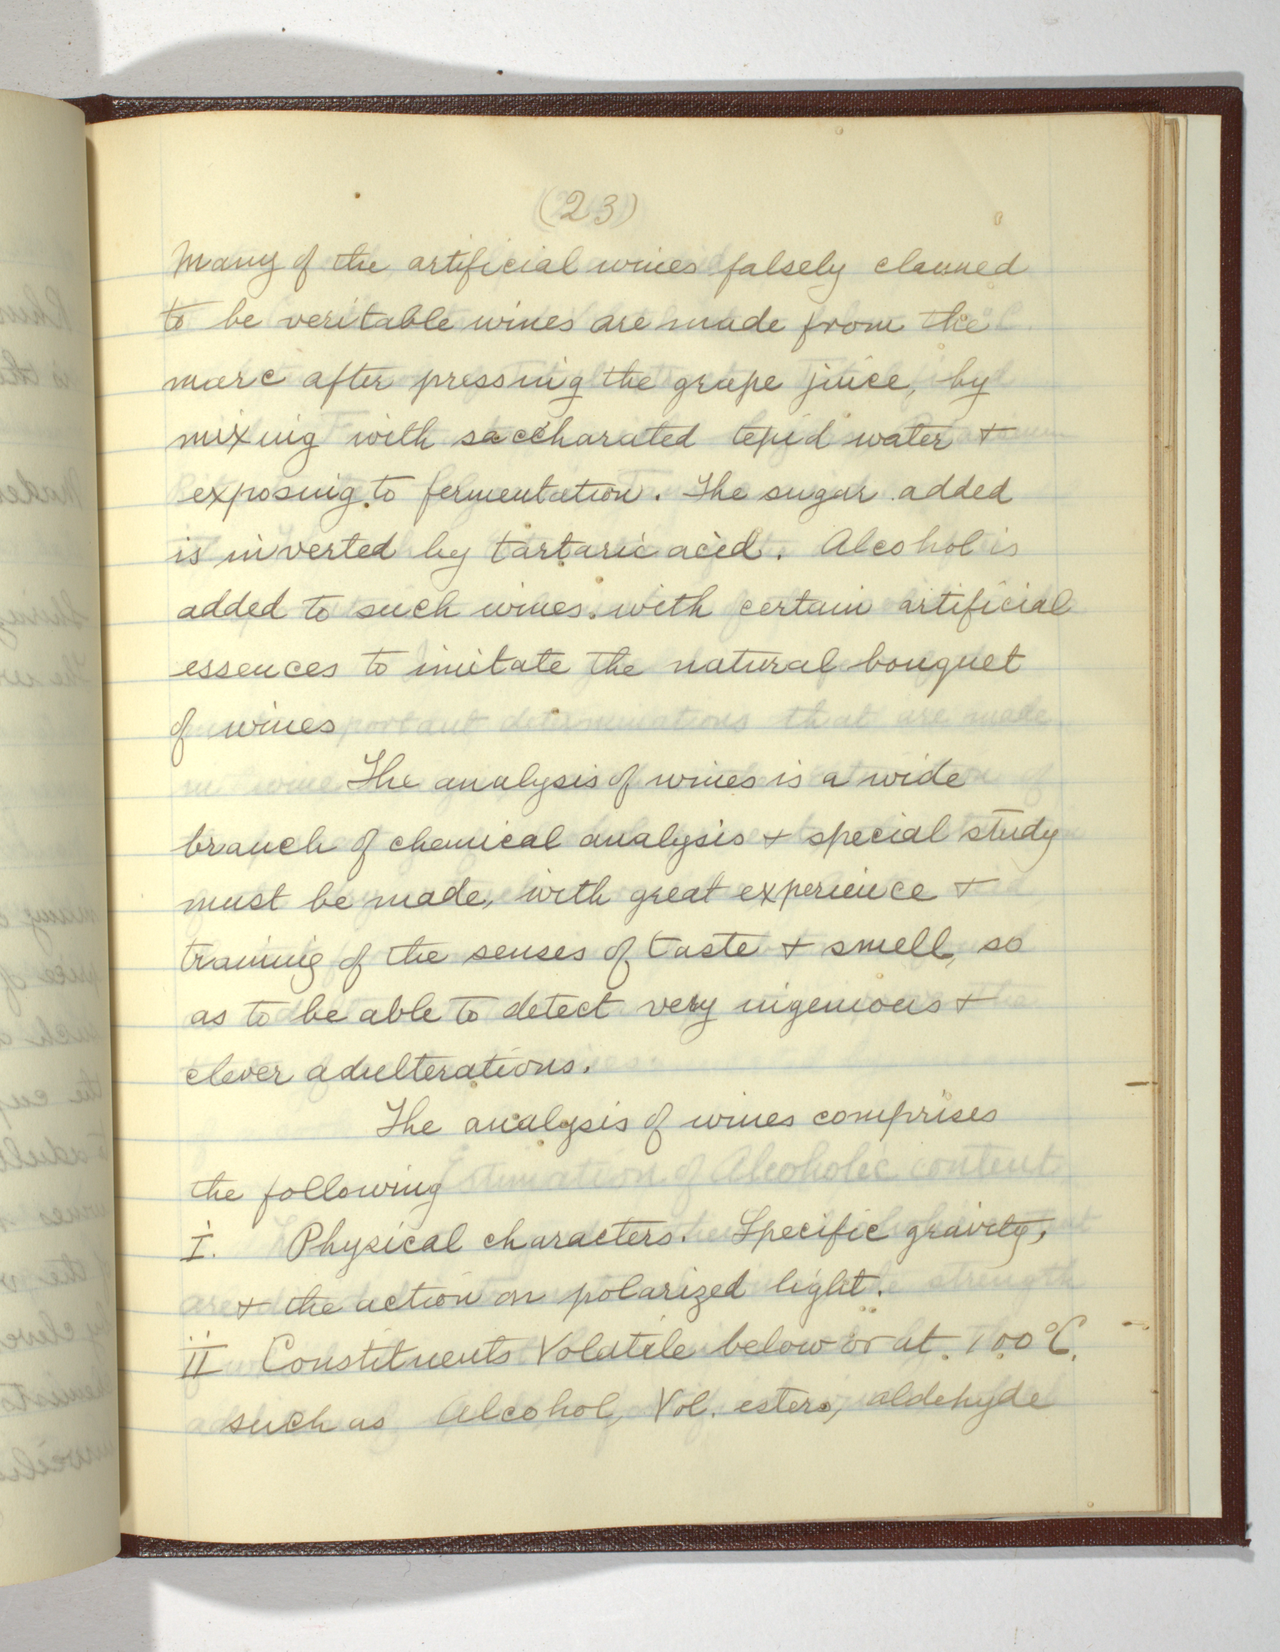 (23)
Many of the artificial wines falsely claimed
to be veritable wines are made from the
marc after pressing the grape juice, by
mixing with saccharated tepid water +
exposing to fermentation. The sugar added
is inverted by tartaric acid. Alcohol is
added to such wines. with certain artificial
essences to imitate the natural bouquet
of wines
The analysis of wines is a wide
branch of chemical analysis + special study
must be made, with great experience +
training of the senses of taste + smell, so
as to be able to detect very ingenious +
clever adulterations.
The analysis of wines comprises
the following
I. Physical characters. Specific gravity,
+ the action on polarized light.
II Constituents Volatile below or at 100°C.
such as Alcohol, Vol. esters, aldehyde